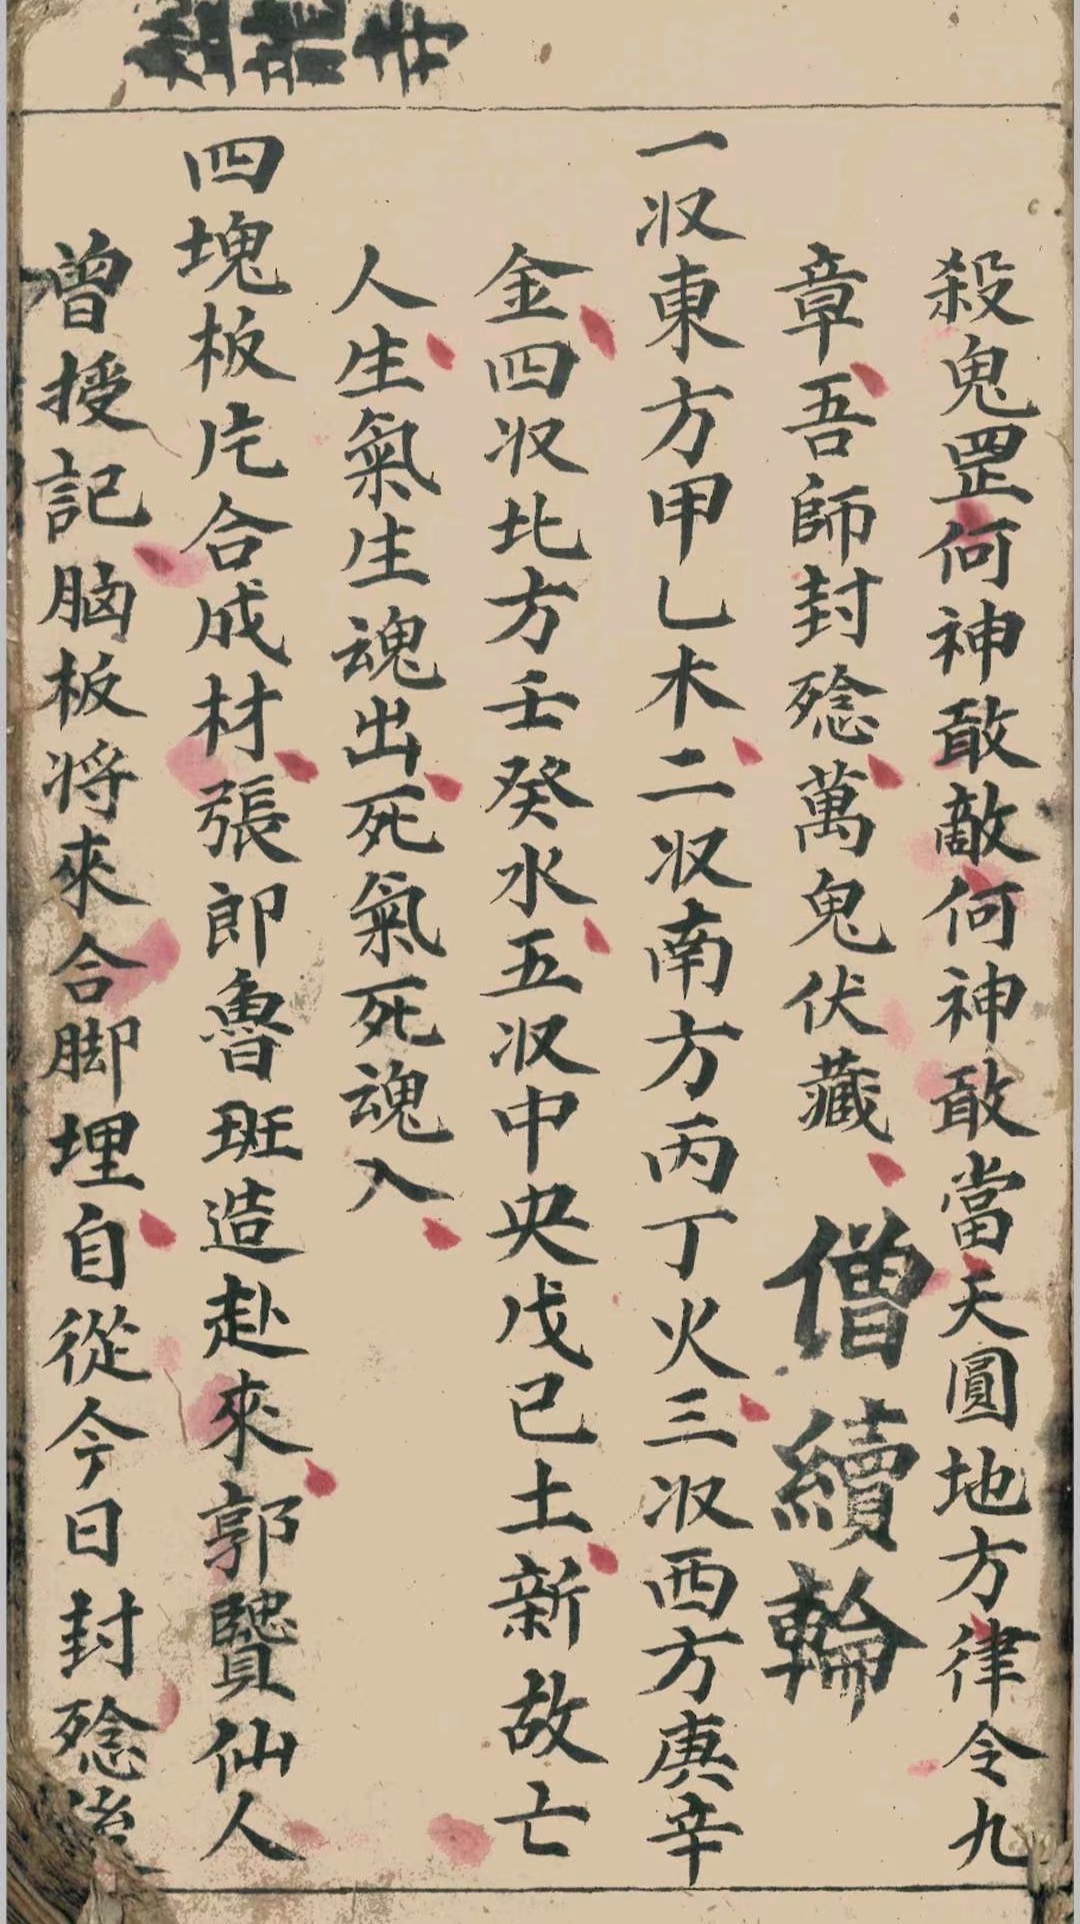 殺鬼罡何神敢敵何神敢當天圓地方律令九
章吾師封殮萬鬼伏藏 僧續輪
一収東方甲乚木二収南方丙丁火三収西方庚辛
金四収北方壬癸水五収中央戊己土新故亡
人生氣生魂出死氣死魂入
四塊板片合成材張郎魯班造赴來郭賢仙人
曾授記脑板将來合脚埋自從今日封殮後